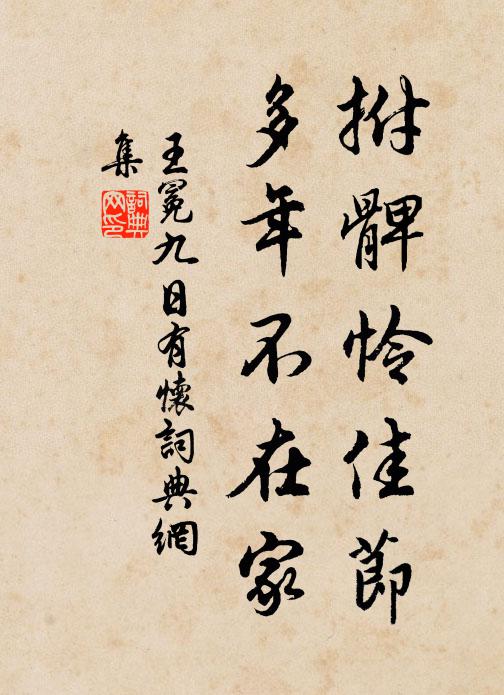 拊髀怜佳節
多年不在家
王冕九日有懷詞典網
集
詞典
网印